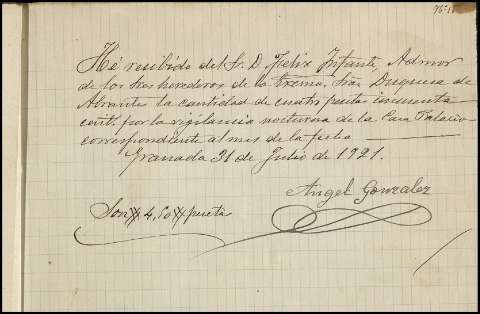 Hé recibido del Sr. D. Felix Infante, Admor
de los tres herederos de la Excma. Sra. Duquesa de
Abrantes la cantidad de cuatro pesetas cincuenta
cents. por la vigilancia nocturna de la Casa Palacio
correspondiente al mes de la fecha
Granada 31 de Julio de 1921.
Angel Gonzalez
Son # 4,50 # pesetas